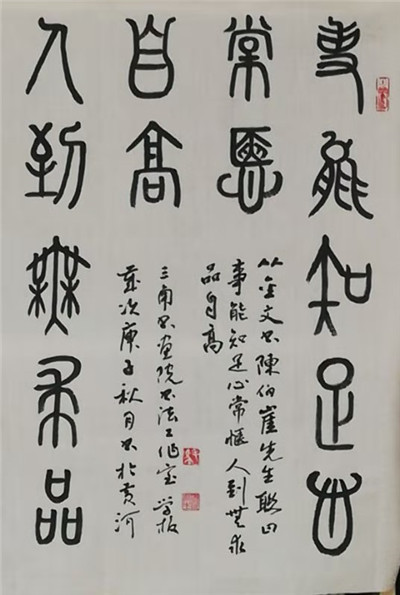 事能知足心
常愜
人到無求品
自高
以金文书陳伯崖先生联曰
事能知足心常惬人到無求
品自高
三角书画院书法工作室
歲次庚子秋月书於黄河